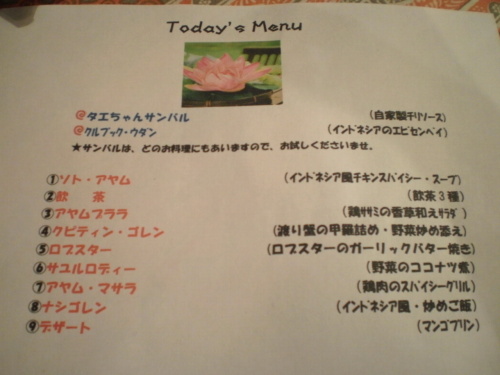 Today's Menu
@タエちゃんサンバル (自家製チリソース)
@クルプック・ウダン (インドネシアのエビセンベイ)
★サンバルは、どのお料理にもあいますので、お試しくださいませ。
①ソト・アヤム (インドネシア風チキンスパイシー・スープ)
②飲 茶 (飲茶3種)
③アヤムプララ (鶏ササミの香草和えサラダ)
④クピティン・ゴレン (渡り蟹の甲羅詰め・野菜炒め添え)
⑤ロブスター (ロブスターのガーリックバター焼き)
⑥サユルロディー (野菜のココナツ煮)
⑦アヤム・マサラ (鶏肉のスパイシーグリル)
⑧ナシゴレン (インドネシア風・炒めご飯)
⑨デザート (マンゴプリン)